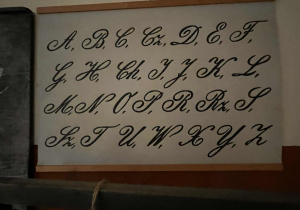 A, B, C, Cz, D, E, F,
G, H, Ch, I, J, K, L,
M, N, O, P, R, Rz, S,
Sz, T U, W, X Y, Z